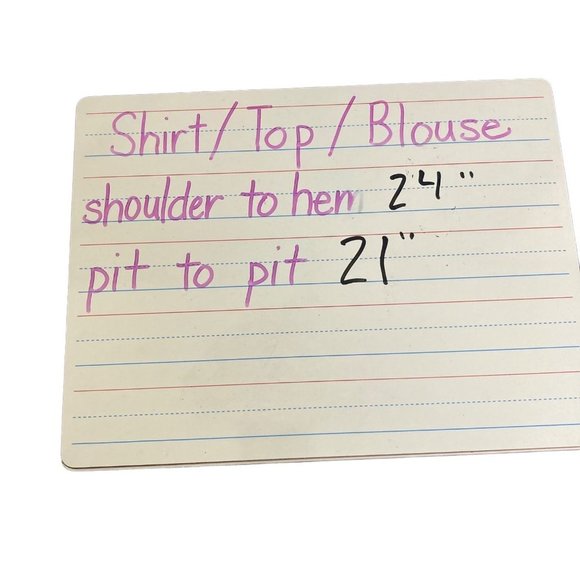 Shirt/Top/Blouse
shoulder to hem 24"
pit to pit 21"